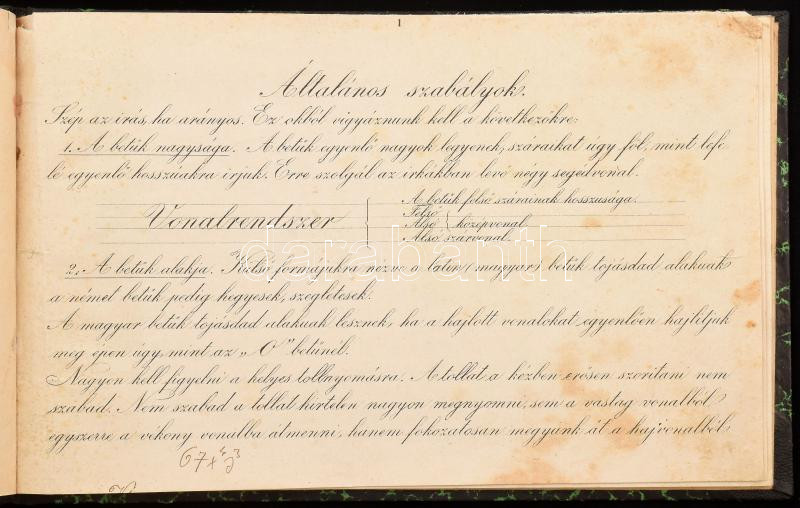 1
Általános szabályok.
Szép az irás, ha arányos. Ez okból vigyáznunk kell a következőkre:
1. A betűk nagysága. A betűk egyenlő nagyok legyenek, száraikat úgy föl, mint lefe
lé egyenlő hosszúakra irjuk. Erre szolgál az irkákban levő négy segédvonal.
Vonalrendszer
A betűk felső szárainak hosszusága.
Felső
Alsó középvonal
Alsó szárvonal.
darabanth
2. A betűk alakja. Külső formájukra nézve a latin (magyar) betűk tojásdad alakuak
a német betűk pedig hegyesek, szegletesek.
A magyar betűk tojásdad alakuak lesznek, ha a hajlott vonalokat egyenlően hajlítjuk
még épen úgy, mint az „O" betűnél.
Nagyon kell figyelni a helyes tollnyomásra. A tollat a kézben erősen szoritani nem
szabad. Nem szabad a tollat hirtelen nagyon megnyomni, sem a vastag vonalból
egyszerre a vékony vonalba átmenni, hanem fokozatosan megyünk át a hajvonalból